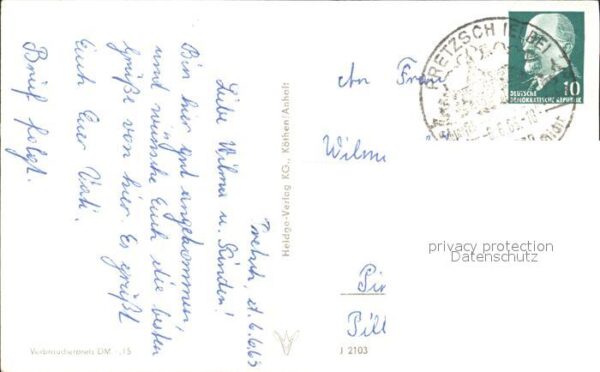 Pretzsch, d. 6.6.63
Liebe Wilma u. Kinder!
Bin hier gut angekommen,
und wünsche Euch die besten
Grüße von hier. Es grüßt
Euch Euer Vati.
Brief folgt.
Verbraucherpreis DM -,15
Heldge-Verlag KG., Köthen/Anhalt
J 2103
An Frau
Wilm
Pir
Pill
PRETZSCH (ELBE)
10
DEUTSCHE
DEMOKRATISCHE REPUBLIK
privacy protection
Datenschutz